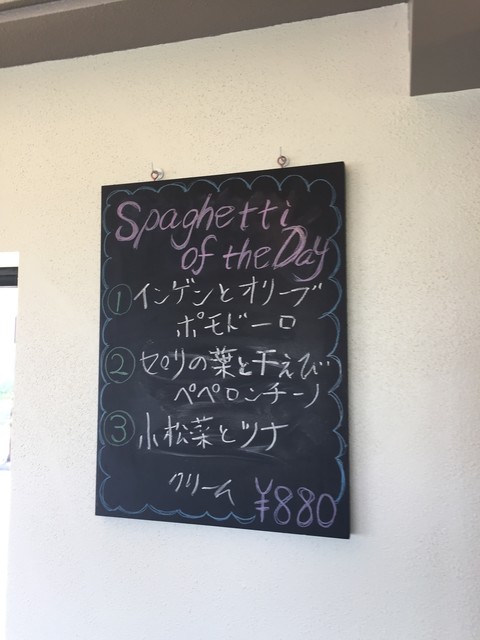 Spaghetti
of the Day
① インゲンとオリーブ
ポモドーロ
② セロリの葉と干えび
ペペロンチーノ
③ 小松菜とツナ
クリーム
¥880